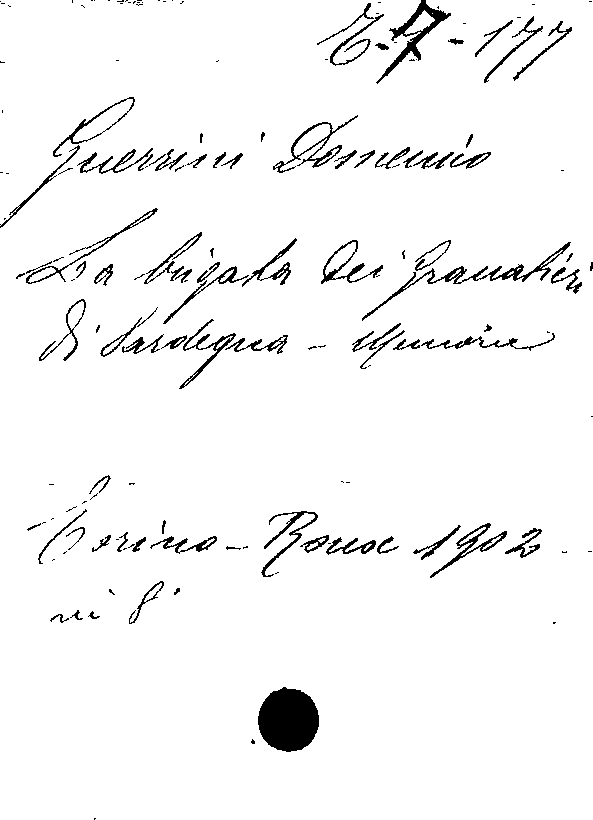 E-7-177
Guerrini Domenico
La brigata dei Granatieri
di Sardegna - Memorie
Torino - Roux 1902
in 8°